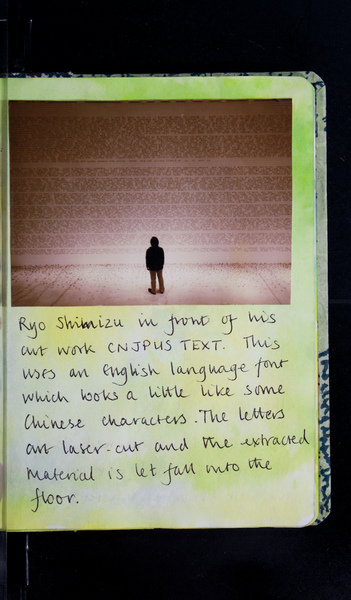 Ryo Shimizu in front of his
art work CNJPUS TEXT. This
uses an English language font
which looks a little like some
Chinese characters. The letters
are laser-cut and the extracted
material is let fall into the
floor.